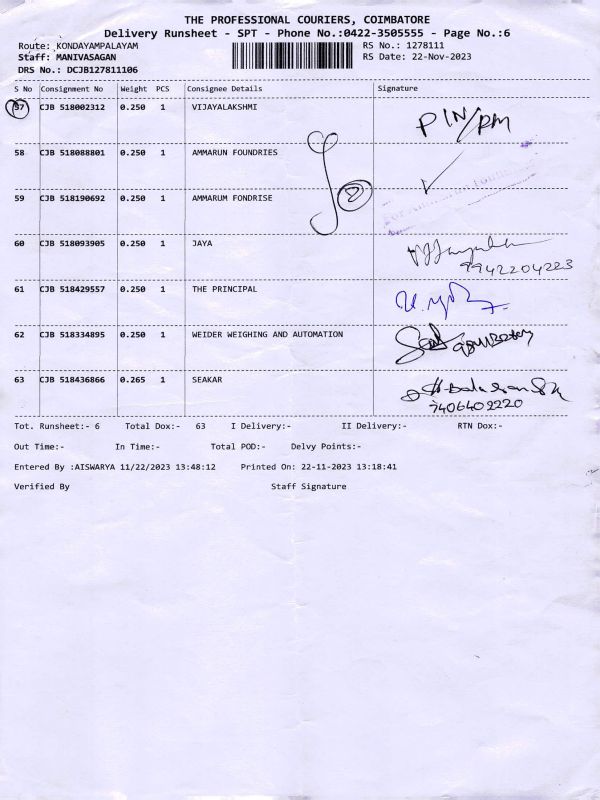 THE PROFESSIONAL COURIERS, COIMBATORE
Delivery Runsheet - SPT - Phone No.:0422-3505555 - Page No.:6
Route: KONDAYAMPALAYAM
RS No.: 1278111
Staff: MANIVASAGAN
RS Date: 22-Nov-2023
DRS No.: DCJB127811106
S No Consignment No Weight PCS Consignee Details Signature
57 CJB 518002312 0.250 1 VIJAYALAKSHMI PIN/RM
58 CJB 518088801 0.250 1 AMMARUN FOUNDRIES
59 CJB 518190692 0.250 1 AMMARUM FONDRISE
60 CJB 518093905 0.250 1 JAYA
9942204223
61 CJB 518429557 0.250 1 THE PRINCIPAL
62 CJB 518334895 0.250 1 WEIDER WEIGHING AND AUTOMATION
63 CJB 518436866 0.265 1 SEAKAR
7406402220
Tot. Runsheet:- 6 Total Dox:- 63 I Delivery:- II Delivery:- RTN Dox:-
Out Time:- In Time:- Total POD:- Delvy Points:-
Entered By :AISWARYA 11/22/2023 13:48:12 Printed On: 22-11-2023 13:18:41
Verified By Staff Signature